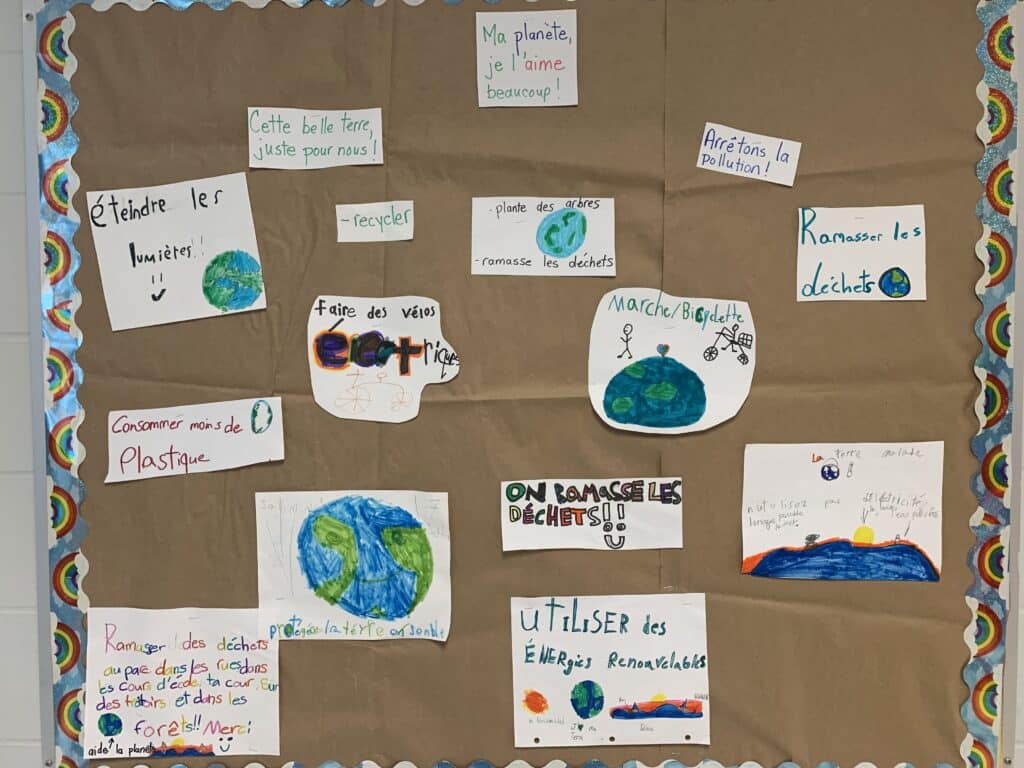 Ma planète,
je l'aime
beaucoup!
Cette belle terre,
juste pour nous!
Arrêtons la
pollution!
éteindre les
lumières!!
-recycler
- plante des arbres
- ramasse les déchets
Ramasser les
déchets
faire des vélos
électriques
Marche/Bicyclette
Consommer moins de
Plastique
ON RAMASSE LES
DÉCHETS!!
La terre malade
n'utilisez pas
protégée la terre ensemble
Ramaser des déchets
au parc dans les rues dans
les cours d'école, ta cour, sur
des trotoirs et dans les
forêts!! Merci
aide la planète
UTILISER des
ÉNERgies Renouvelables